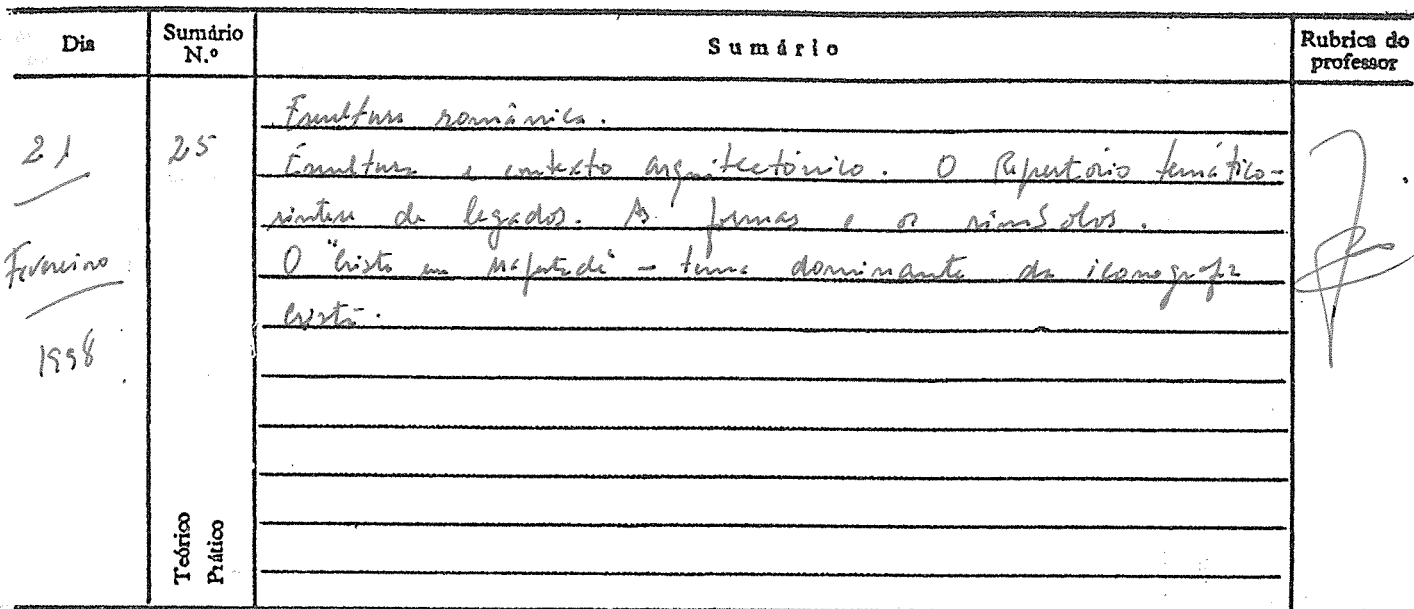 Dia
Sumário N.º
Sumário
Rubrica do professor
21
Fevereiro
1998
25
Teórico
Prático
Escultura românica.
Escultura e contexto arquitectónico. O Repertório temático-
síntese de legados. As formas e os símbolos.
O "Cristo em Majestade" - tema dominante da iconografia
cristã.